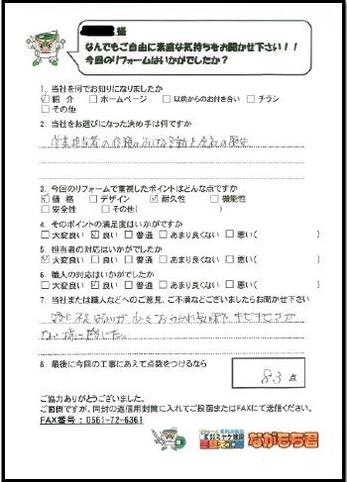 様
なんでもご自由に素直な気持ちをお聞かせ下さい！！
今回のリフォームはいかがでしたか？
1. 当社を何でお知りになりましたか
☑紹 介 □ホームページ □以前からのお付き合い □チラシ
□その他
2. 当社をお選びになった決め手は何ですか
営業担当者の
3. 今回のリフォームで重視したポイントはどんな点ですか
☑価 格 □デザイン ☑耐久性 □機能性
□安全性 □その他( )
4. そのポイントの満足度はいかがですか
□大変良い ☑良い □普通 □あまり良くない □悪い( )
5. 担当者の対応はいかがでしたか
☑大変良い □良い □普通 □あまり良くない □悪い( )
6. 職人の対応はいかがでしたか
□大変良い ☑良い □普通 □あまり良くない □悪い( )
7. 当社または職人などへのご意見、ご不満などございましたらお聞かせ下さい
特に不足はないが
ない様に感じた。
8. 最後に今回の工事にあえて点数をつけるなら
83 点
ご協力ありがとうございました。
ご面倒ですが、同封の返信用封筒に入れてご投函またはFAXにて送信ください。
FAX番号：0561-72-6361
ながもち君